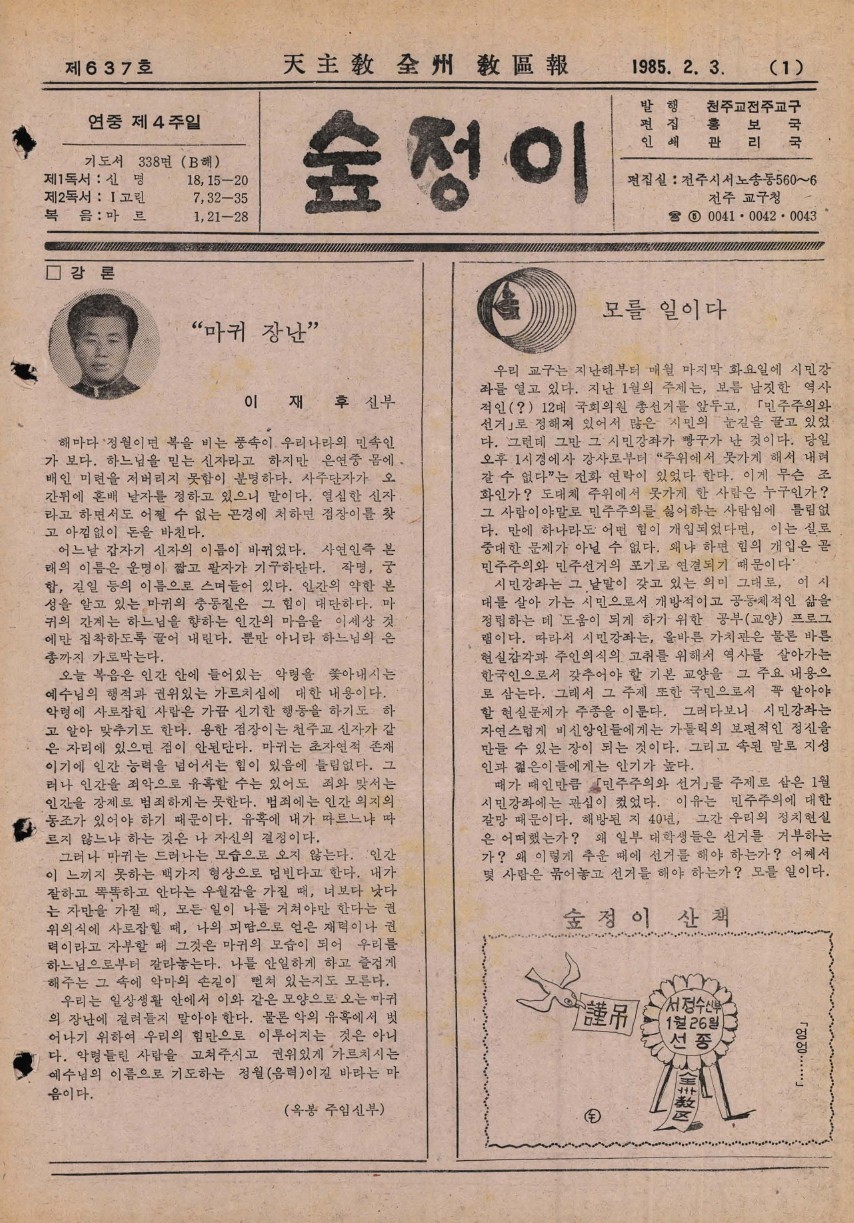 제637호
天主敎 全州 敎區報
1985. 2. 3.
(1)
연중 제4주일
기도서 338면 (B해)
제1독서 : 신 명 18,15—20
제2독서 : Ⅰ고린 7,32—35
복 음 : 마 르 1,21—28
숲정이
발 행 천주교전주교구
편 집 홍 보 국
인 쇄 관 리 국
편집실 : 전주시서노송동560~6
전주 교구청
☎ ⑤ 0041・0042・0043
□ 강 론
“마귀 장난”
이 재 후 신부
해마다 정월이면 복을 비는 풍속이 우리나라의 민속인
가 보다. 하느님을 믿는 신자라고 하지만 은연중 몸에
배인 미련을 저버리지 못함이 분명하다. 사주단자가 오
간뒤에 혼배 날자를 정하고 있으니 말이다. 열심한 신자
라고 하면서도 어쩔 수 없는 곤경에 처하면 점장이를 찾
고 아낌없이 돈을 바친다.
어느날 갑자기 신자의 이름이 바뀌었다. 사연인즉 본
래의 이름은 운명이 짧고 팔자가 기구하단다. 작명, 궁
합, 길일 등의 이름으로 스며들어 있다. 인간의 약한 본
성을 알고 있는 마귀의 충동질은 그 힘이 대단하다. 마
귀의 간계는 하느님을 향하는 인간의 마음을 이세상 것
에만 집착하도록 끌어 내린다. 뿐만 아니라 하느님의 은
총까지 가로막는다.
오늘 복음은 인간 안에 들어있는 악령을 쫓아내시는
예수님의 행적과 권위있는 가르치심에 대한 내용이다.
악령에 사로잡힌 사람은 가끔 신기한 행동을 하기도 하
고 알아 맞추기도 한다. 용한 점장이는 천주교 신자가 같
은 자리에 있으면 점이 안된단다. 마귀는 초자연적 존재
이기에 인간 능력을 넘어서는 힘이 있음에 틀림없다. 그
러나 인간을 죄악으로 유혹할 수는 있어도 죄와 맞서는
인간을 강제로 범죄하게는 못한다. 범죄에는 인간 의지의
동조가 있어야 하기 때문이다. 유혹에 내가 따르느냐 따
르지 않느냐 하는 것은 나 자신의 결정이다.
그러나 마귀는 드러나는 모습으로 오지 않는다. 인간
이 느끼지 못하는 백가지 형상으로 덤빈다고 한다. 내가
잘하고 똑똑하고 안다는 우월감을 가질 때, 너보다 낫다
는 자만을 가질 때, 모든 일이 나를 거쳐야만 한다는 권
위의식에 사로잡힐 때, 나의 피땀으로 얻은 재력이나 권
력이라고 자부할 때 그것은 마귀의 모습이 되어 우리를
하느님으로부터 갈라놓는다. 나를 안일하게 하고 즐겁게
해주는 그 속에 악마의 손길이 뻗쳐 있는지도 모른다.
우리는 일상생활 안에서 이와 같은 모양으로 오는 마귀
의 장난에 걸려들지 말아야 한다. 물론 악의 유혹에서 벗
어나기 위하여 우리의 힘만으로 이루어지는 것은 아니
다. 악령들린 사람을 고쳐주시고 권위있게 가르치시는
예수님의 이름으로 기도하는 정월(음력)이길 바라는 마
음이다.
(옥봉 주임신부)
모를 일이다
우리 교구는 지난해부터 매월 마지막 화요일에 시민강
좌를 열고 있다. 지난 1월의 주제는, 보름 남짓한 역사
적인(?) 12대 국회의원 총선거를 앞두고, 「민주주의와
선거」로 정해져 있어서 많은 시민의 눈길을 끌고 있었
다. 그런데 그만 그 시민강좌가 빵구가 난 것이다. 당일
오후 1시경에사 강사로부터 “주위에서 못가게 해서 내려
갈 수 없다”는 전화 연락이 있었다 한다. 이게 무슨 조
화인가? 도대체 주위에서 못가게 한 사람은 누구인가?
그 사람이야말로 민주주의를 싫어하는 사람임에 틀림없
다. 만에 하나라도 어떤 힘이 개입되었다면, 이는 실로
중대한 문제가 아닐 수 없다. 왜냐 하면 힘의 개입은 곧
민주주의와 민주선거의 포기로 연결되기 때문이다.
시민강좌는 그 낱말이 갖고 있는 의미 그대로, 어 시
대를 살아 가는 시민으로서 개방적이고 공동체적인 삶을
정립하는 데 도움이 되게 하기 위한 공부(교양) 프로그
램이다. 따라서 시민강좌는, 올바른 가치관은 물론 바른
현실감각과 주인의식의 고취를 위해서 역사를 살아가는
한국인으로서 갖추어야 할 기본 교양을 그 주요 내용으
로 삼는다. 그래서 그 주제 또한 국민으로서 꼭 알아야
할 현실문제가 주종을 이룬다. 그러다보니 시민강좌는
자연스럽게 비신앙인들에게는 가톨릭의 보편적인 정신을
만들 수 있는 장이 되는 것이다. 그리고 속된 말로 지성
인과 젊은이들에게는 인기가 높다.
때가 때인만큼 「민주주의와 선거」를 주제로 삼은 1월
시민강좌에는 관심이 컸었다. 이유는 민주주의에 대한
갈망 때문이다. 해방된 지 40년, 그간 우리의 정치현실
은 어떠했는가? 왜 일부 대학생들은 선거를 거부하는
가? 왜 이렇게 추운 때에 선거를 해야 하는가? 어째서
몇 사람은 묶어놓고 선거를 해야 하는가? 모를 일이다.
숲정이 산책
謹弔
서정수신부
1월26일
선종
全州敎区
「엉엉……」